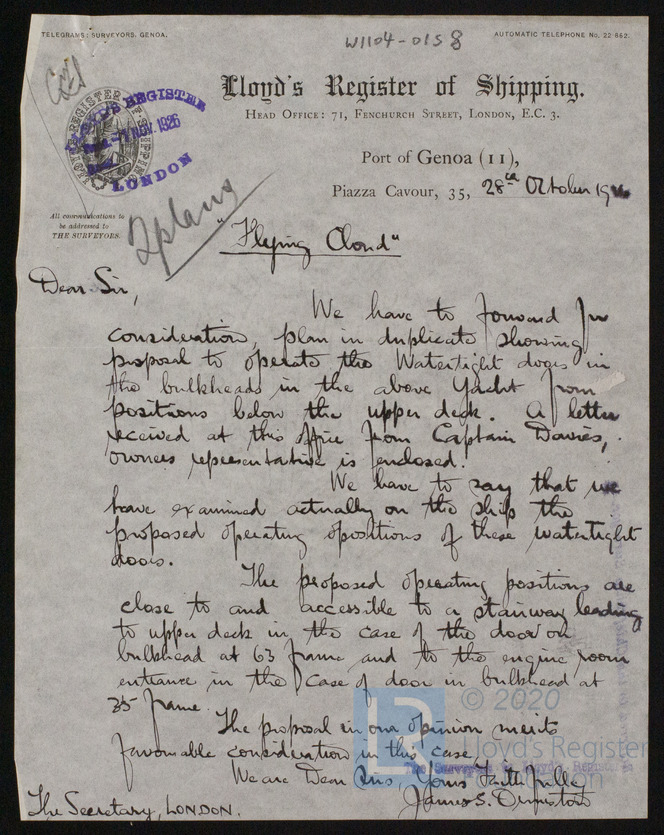 TELEGRAMS: SURVEYORS, GENOA.
W1104-0158
AUTOMATIC TELEPHONE No. 22-862.
Lloyd's Register of Shipping.
HEAD OFFICE: 71, FENCHURCH STREET, LONDON, E.C. 3.
LLOYD'S REGISTER
NOV. 1926
LONDON
Port of Genoa (11),
Piazza Cavour, 35, 28th October 19
All communications to
be addressed to
THE SURVEYORS.
2 plans
"Flying Cloud"
Dear Sir,
We have to forward for
consideration, plan in duplicate showing
proposal to operate the Watertight doors in
the bulkheads in the above Yacht from
positions below the upper deck. A letter
received at this office from Captain Davies,
owners representative is enclosed.
We have to say that we
have examined actually on the ship the
proposed operating opositions of these watertight
doors.
The proposed operating positions are
close to and accessible to a stairway leading
to upper deck in the case of the door on
bulkhead at 63 frame and to the engine room
entrance in the case of door in bulkhead at
35 frame.
The proposal in our opinion merits
favourable consideration in this case.
We are Dear Sirs, Yours faithfully
James S. Ormiston
The Secretary, LONDON.
© 2020
Lloyd's Register
Foundation